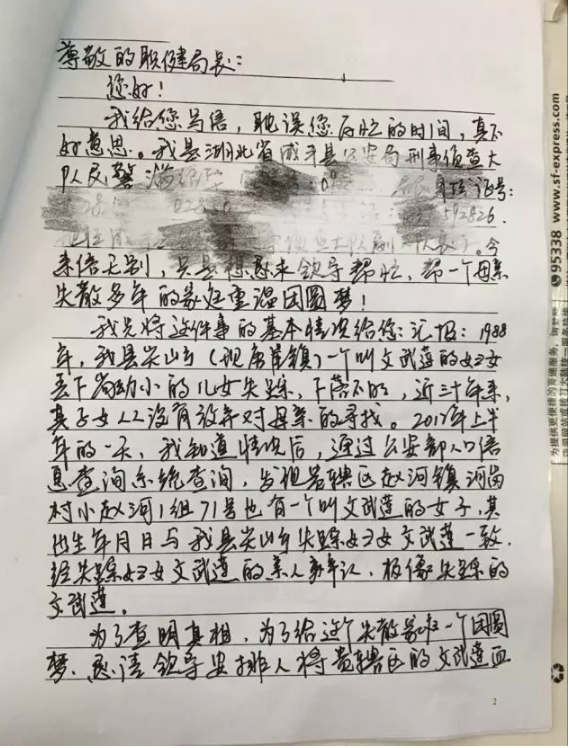 尊敬的耿健局长：
您好！
我给您写信，耽误您百忙的时间，真不
好意思。我是湖北省咸丰县公安局刑事侦查大
队民警
证号：
592826.
大队副大队长）。今
来信无别，只是想恳求领导帮忙，帮一个母亲
失散多年的家庭重温团圆梦！
我先将这件事的基本情况给您汇报：1988
年，我县尖山乡（现唐崖镇）一个叫文武莲的妇女
丢下当幼小的儿女失踪，下落不明，近三十年来，
其子女从没有放弃对母亲的寻找。2017年上半
年的一天，我知道情况后，通过公安部人口信
息查询系统查询，发现贵辖区赵河镇河岗
村小赵河1组71号也有一个叫文武莲的女子，其
出生年月日与我县尖山乡失踪妇女文武莲一致.
经失踪妇女文武莲的亲人辨认，极像失踪的
文武莲。
为了查明真相，为了给这个失散家庭一个团圆
梦、恳请领导安排人将贵辖区的文武莲血
2
95338 www.sf-express.com